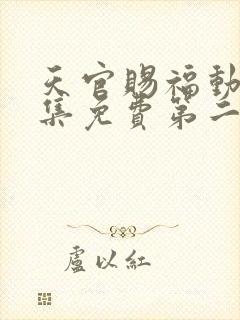 天官賜福動
集免費第二
盧以紅